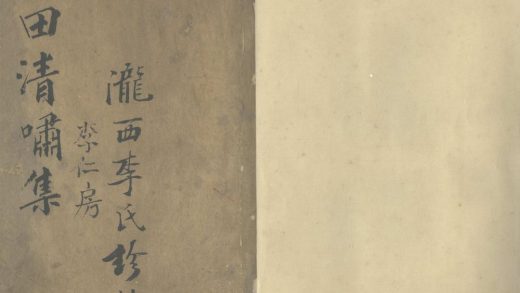 瀧西李氏珍
李仁房
田清嘯集